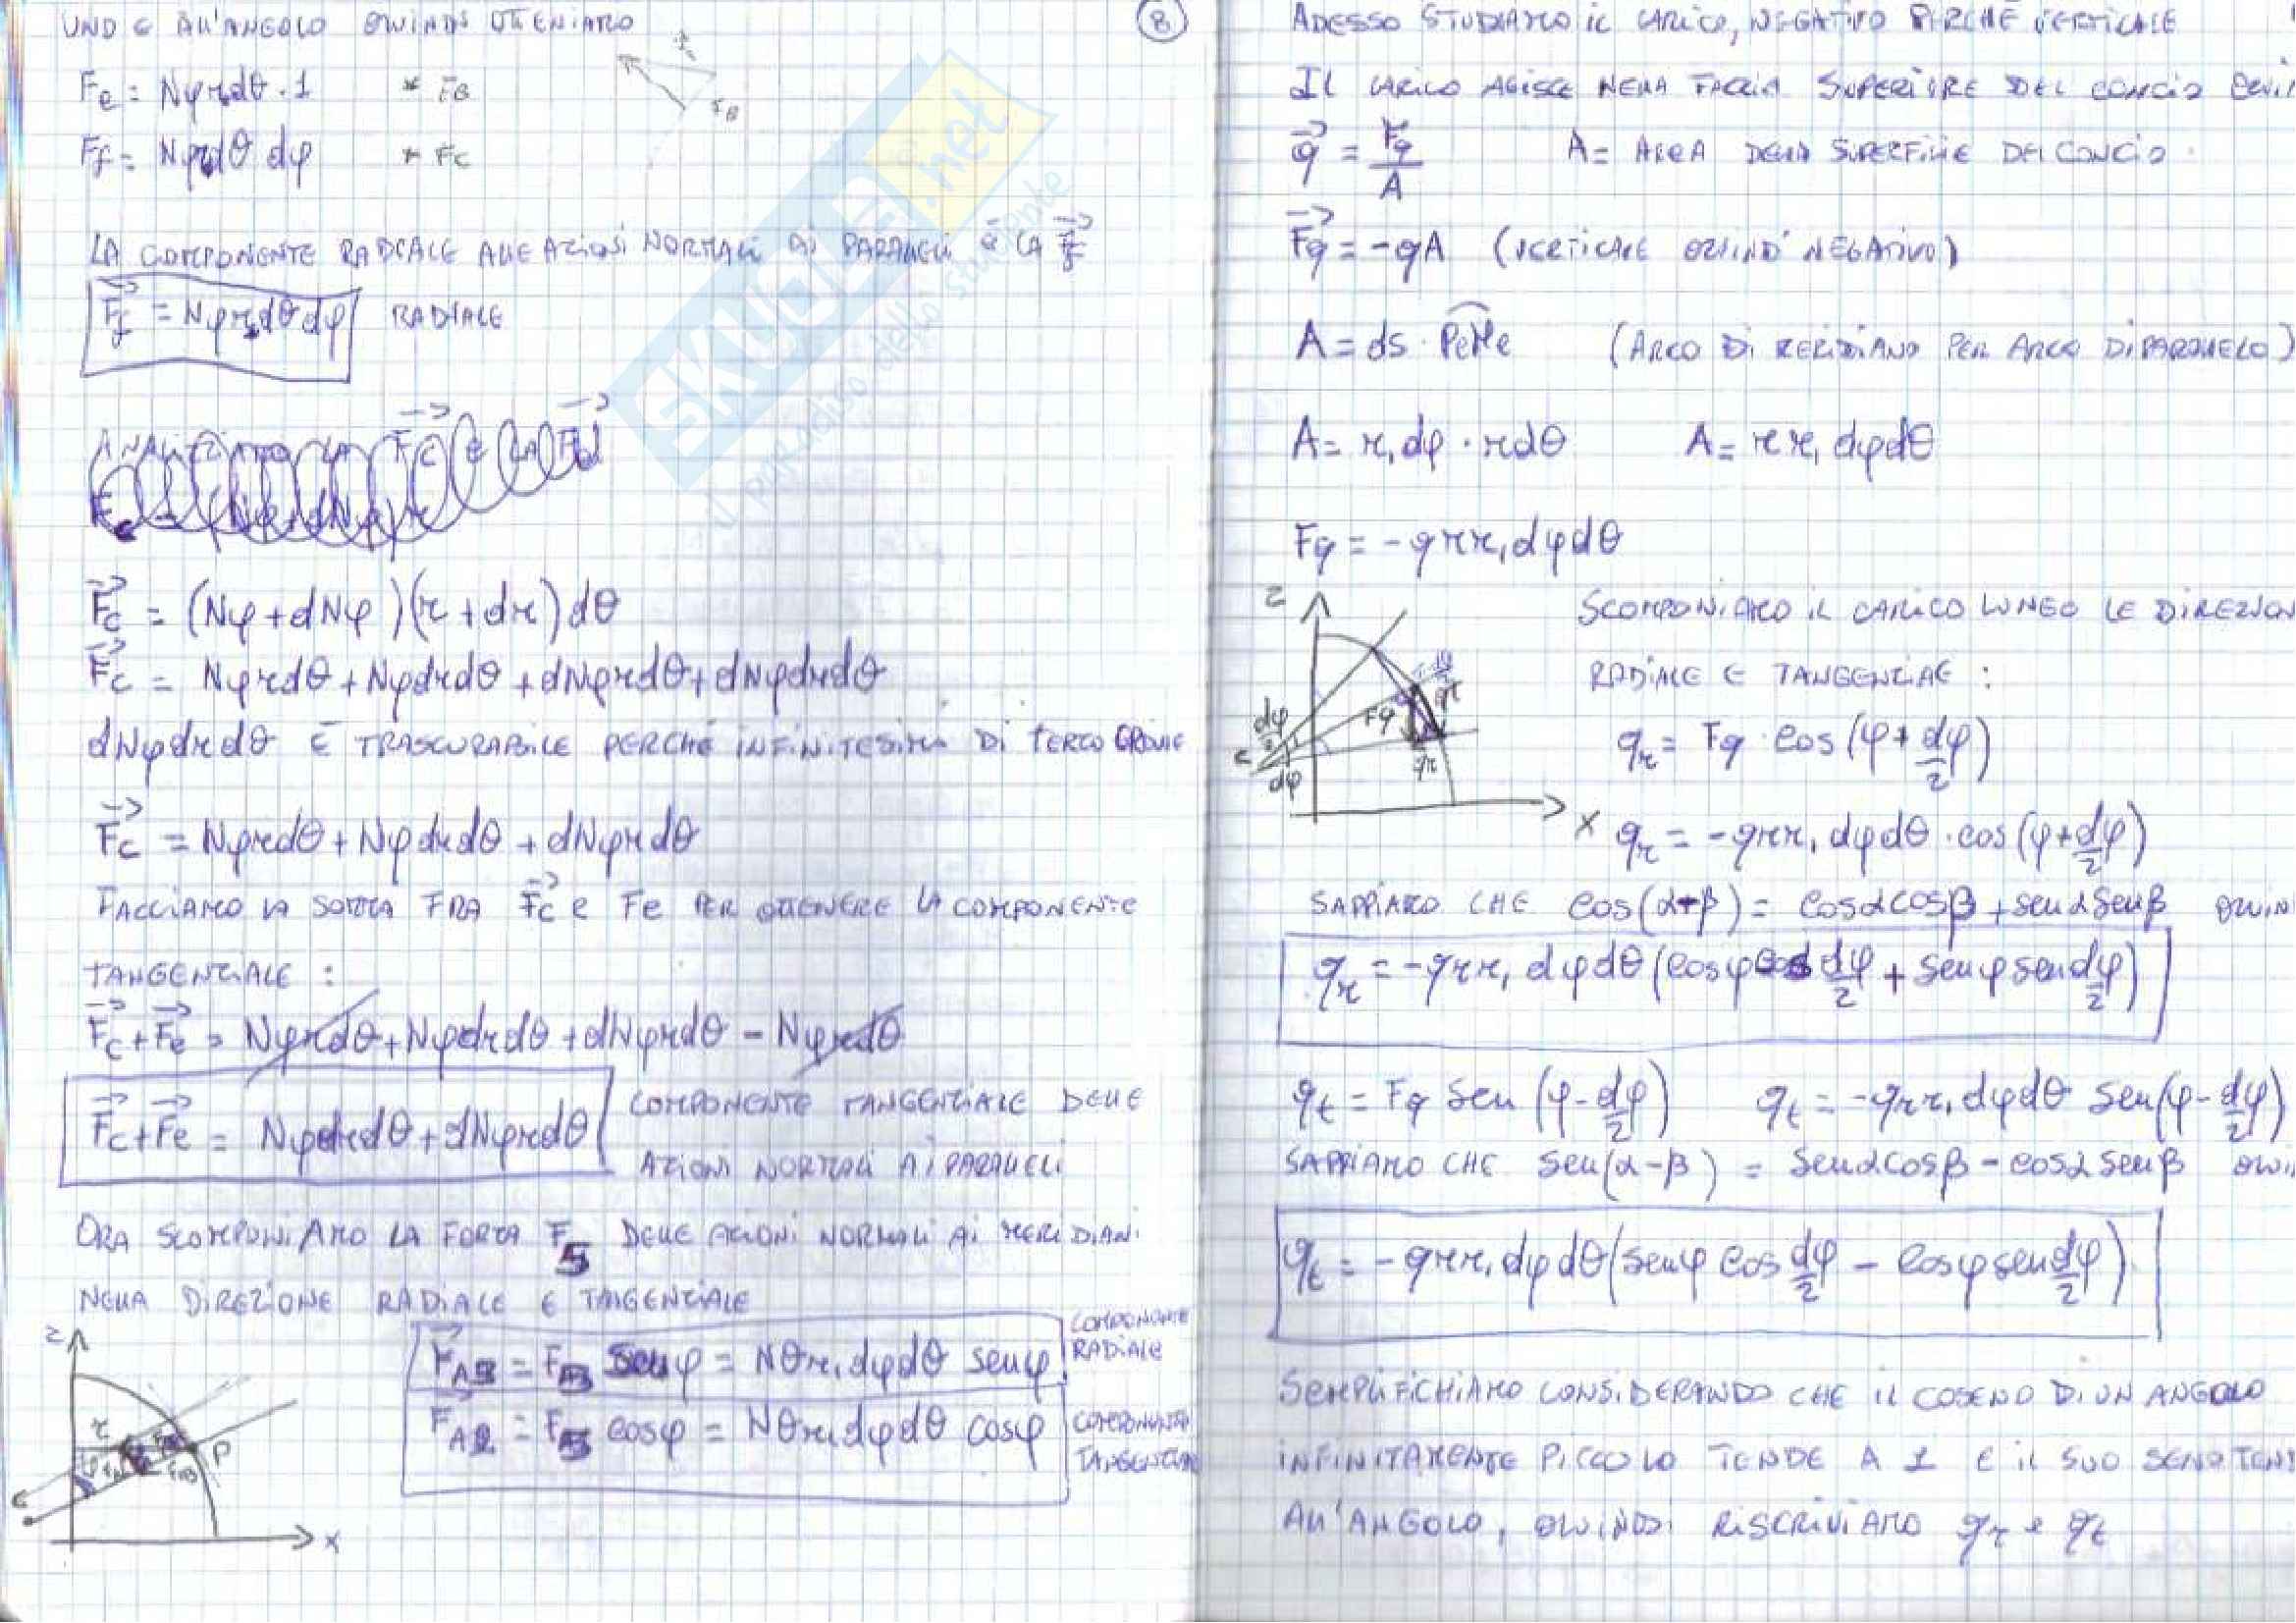 UNO E ALL'ANGOLO QUINDI OTTENIAMO
8
Fe = Nφrdθ · 1 * FB
FB
Ff = Nφrdθ dφ * Fc
LA COMPONENTE RADIALE ALLE AZIONI NORMALI AI PARALLELI È LA Ff
Ff = Nφrdθdφ RADIALE
ANALIZZIAMO LA Fc E LA Fd
Fc = (Nφ+dNφ)r
Fc = (Nφ+dNφ)(r+dr)dθ
Fc = Nφrdθ+Nφdrdθ+dNφrdθ+dNφdrdθ
dNφdrdθ È TRASCURABILE PERCHÉ INFINITESIMA DI TERZO ORDINE
Fc = Nφrdθ+Nφdrdθ+dNφrdθ
FACCIAMO LA SOMMA FRA Fc e Fe PER OTTENERE LA COMPONENTE
TANGENZIALE :
Fc+Fe = Nφrdθ+Nφdrdθ+dNφrdθ - Nφrdθ
Fc+Fe = Nφdrdθ+dNφrdθ
COMPONENTE TANGENZIALE DELLE
AZIONI NORMALI AI PARALLELI
ORA SCOMPONIAMO LA FORZA F5 DELLE AZIONI NORMALI AI MERIDIANI
NELLA DIREZIONE RADIALE E TANGENZIALE
FAB = FAB senφ = Nθr₁dφdθ senφ
COMPONENTE
RADIALE
FAR = FAB cosφ = Nθr₁dφdθ cosφ
COMPONENTE
TANGENZIAL
z
r
P
c
x
ADESSO STUDIAMO IL CARICO, NEGATIVO PERCHÉ VERTICALE
IL CARICO AGISCE NELLA FACCIA SUPERIORE DEL CONCIO QUI
q = Fq/A A = AREA DELLA SUPERFICIE DEL CONCIO.
Fq = -qA (VERTICALE QUINDI NEGATIVO)
A = ds · PeMe (ARCO DI MERIDIANO PER ARCO DI PARALLELO)
A = r₁dφ · rdθ A = rr₁dφdθ
Fq = -qrr₁dφdθ
z
dφ/2
dφ
c
Fq
qt
qr
x
SCOMPONIAMO IL CARICO LUNGO LE DIREZION
RADIALE E TANGENZIALE :
qr = Fq cos(φ+dφ/2)
qr = -qrr₁dφdθ · cos(φ+dφ/2)
SAPPIAMO CHE cos(α+β) = cosαcosβ+senαsenβ QUIN
qr = -qrr₁dφdθ(cosφcos dφ/2 + senφsen dφ/2)
qt = Fq sen(φ-dφ/2) qt = -qrr₁dφdθ sen(φ-dφ/2)
SAPPIAMO CHE sen(α-β) = senαcosβ-cosαsenβ QUI
qt = -qrr₁dφdθ(senφ cos dφ/2 - cosφsen dφ/2)
SEMPLIFICHIAMO CONSIDERANDO CHE IL COSENO DI UN ANGOLO
INFINITAMENTE PICCOLO TENDE A 1 E IL SUO SENO TEND
ALL'ANGOLO, QUINDI RISCRIVIAMO qr e qt
SKUOLA.net
Il paradiso dello studente